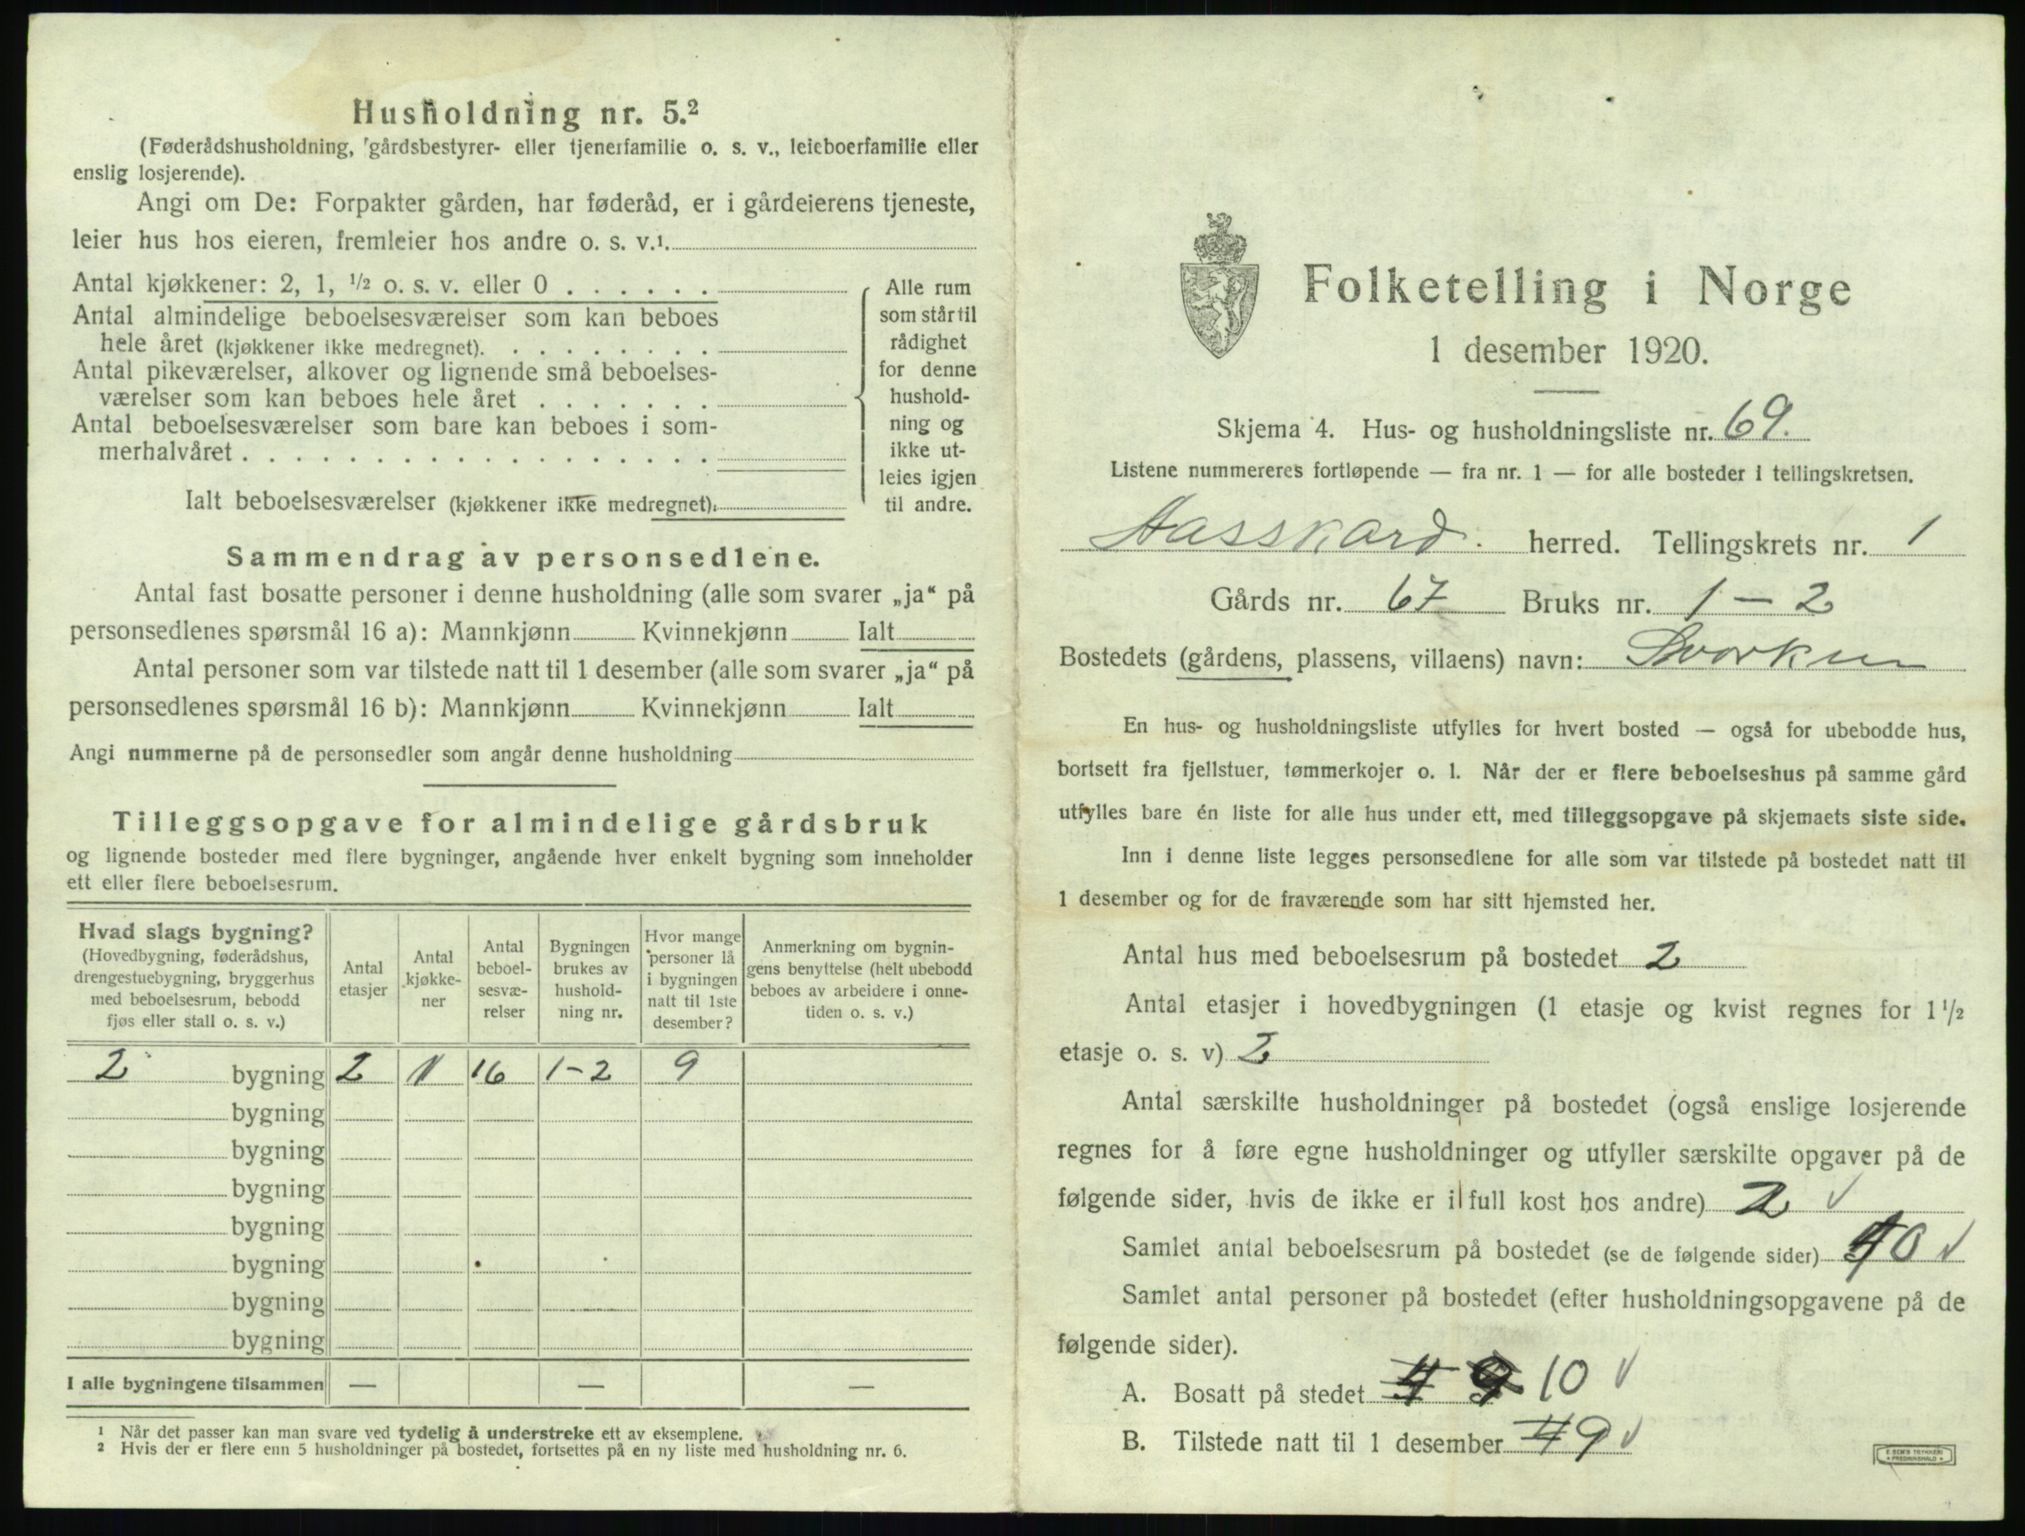 Husholdning nr. 5.²
(Føderådshusholdning, gårdsbestyrer- eller tjenerfamilie o. s. v., leieboerfamilie eller
enslig losjerende).
Angi om De: Forpakter gården, har føderåd, er i gårdeierens tjeneste,
leier hus hos eieren, fremleier hos andre o. s. v.¹
Antal kjøkkener: 2, 1, ½ o. s. v. eller 0
Antal almindelige beboelsesværelser som kan beboes
hele året (kjøkkener ikke medregnet).
Antal pikeværelser, alkover og lignende små beboelses-
værelser som kan beboes hele året
Antal beboelsesværelser som bare kan beboes i som-
merhalvåret
Ialt beboelsesværelser (kjøkkener ikke medregnet).
Alle rum
som står til
rådighet
for denne
hushold-
ning og
ikke ut-
leies igjen
til andre.
Sammendrag av personsedlene.
Antal fast bosatte personer i denne husholdning (alle som svarer „ja“ på
personsedlenes spørsmål 16 a): Mannkjønn Kvinnekjønn Ialt
Antal personer som var tilstede natt til 1 desember (alle som svarer „ja“ på
personsedlenes spørsmål 16 b): Mannkjønn Kvinnekjønn Ialt
Angi nummerne på de personsedler som angår denne husholdning
Tilleggsopgave for almindelige gårdsbruk
og lignende bosteder med flere bygninger, angående hver enkelt bygning som inneholder
ett eller flere beboelsesrum.
Hvad slags bygning?
(Hovedbygning, føderådshus,
drengestuebygning, bryggerhus
med beboelsesrum, bebodd
fjøs eller stall o. s. v.)
Antal
etasjer
Antal
kjøkke-
ner
Antal
beboel-
sesvæ-
relser
Bygningen
brukes av
hushold-
ning nr.
Hvor mange
personer lå
i bygningen
natt til 1ste
desember?
Anmerkning om bygnin-
gens benyttelse (helt ubebodd
beboes av arbeidere i onne-
tiden o. s. v.)
2 bygning 2 1 16 1-2 9
bygning
bygning
bygning
bygning
bygning
bygning
bygning
I alle bygningene tilsammen — — —
¹ Når det passer kan man svare ved tydelig å understreke ett av eksemplene.
² Hvis der er flere enn 5 husholdninger på bostedet, fortsettes på en ny liste med husholdning nr. 6.
Folketelling i Norge
1 desember 1920.
Skjema 4. Hus- og husholdningsliste nr. 69.
Listene nummereres fortløpende — fra nr. 1 — for alle bosteder i tellingskretsen.
Aasskard herred. Tellingskrets nr. 1
Gårds nr. 67 Bruks nr. 1 - 2
Bostedets (gårdens, plassens, villaens) navn: Svorkun
En hus- og husholdningsliste utfylles for hvert bosted — også for ubebodde hus,
bortsett fra fjellstuer, tømmerkojer o. l. Når der er flere beboelseshus på samme gård
utfylles bare én liste for alle hus under ett, med tilleggsopgave på skjemaets siste side.
Inn i denne liste legges personsedlene for alle som var tilstede på bostedet natt til
1 desember og for de fraværende som har sitt hjemsted her.
Antal hus med beboelsesrum på bostedet 2
Antal etasjer i hovedbygningen (1 etasje og kvist regnes for 1½
etasje o. s. v) 2
Antal særskilte husholdninger på bostedet (også enslige losjerende
regnes for å føre egne husholdninger og utfyller særskilte opgaver på de
følgende sider, hvis de ikke er i full kost hos andre) 2 √
Samlet antal beboelsesrum på bostedet (se de følgende sider) 10 √
Samlet antal personer på bostedet (efter husholdningsopgavene på de
følgende sider).
A. Bosatt på stedet 4 9 10 √
B. Tilstede natt til 1 desember 4 9 √
E. SEM'S TRYKKERI
FREDRIKSHALD